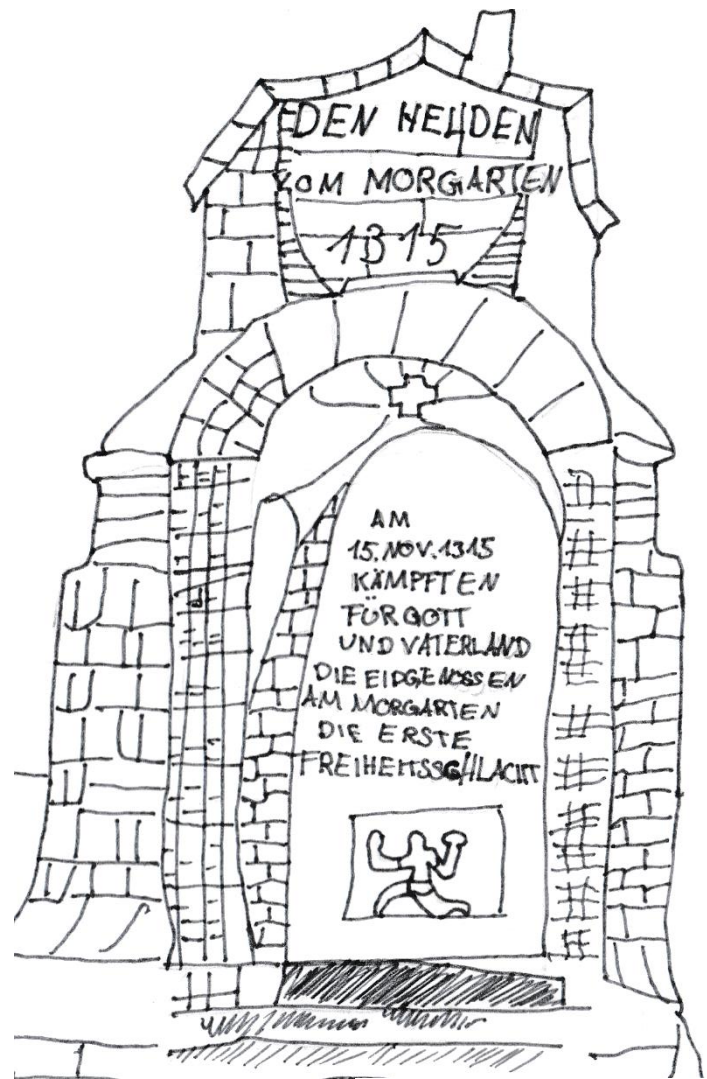 DEN HELDEN
VOM MORGARTEN
1315
AM
15. NOV. 1315
KÄMPFTEN
FÜR GOTT
UND VATERLAND
DIE EIDGENOSSEN
AM MORGARTEN
DIE ERSTE
FREIHEITSSCHLACHT